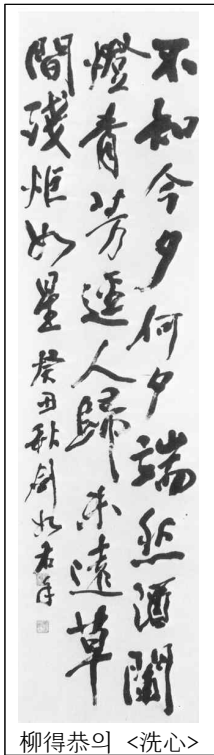 不知今夕何夕端然酒闌
燈青芳逕人歸未遠草
間殘炬如星 癸丑秋劍如
柳得恭의 <洗心>